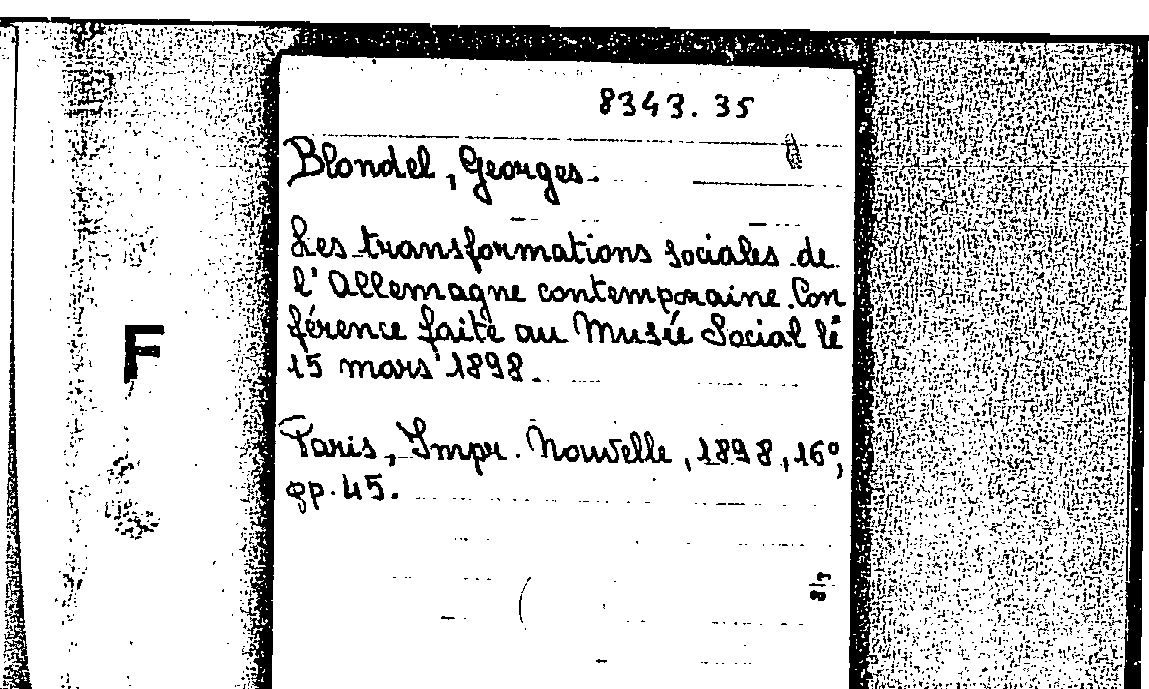 8343.35
Blondel, Georges.
Les transformations sociales de
l'Allemagne contemporaine. Con
férence faite au Musée Social le
15 mars 1898.
Paris, Impr. Nouvelle, 1898, 16º,
pp. 45.
F